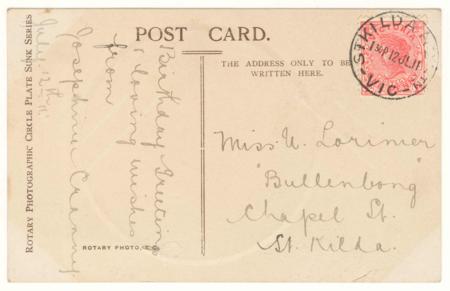 POST CARD.
THE ADDRESS ONLY TO BE
WRITTEN HERE.
ST KILDA
12 JL 11
VIC
Birthday Greetings
& loving wishes
from
Josephine Cranny
July 12th
Miss U. Lorimer
"Bullenbong"
Chapel St.
St. Kilda.
ROTARY PHOTOGRAPHIC CIRCLE PLATE SUNK SERIES
ROTARY PHOTO, E.C.